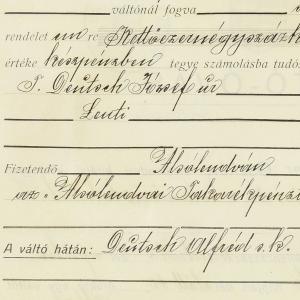 váltónál fogva
rendelet un re Kettőezernégyszázk
értéke készpénzben tegye számolásba tudós
T. Deutsch József úr
Lenti
Fizetendő Alsólendván
az "Alsólendvai Takarékpénz
A váltó hátán: Deutsch Alfréd s.k.